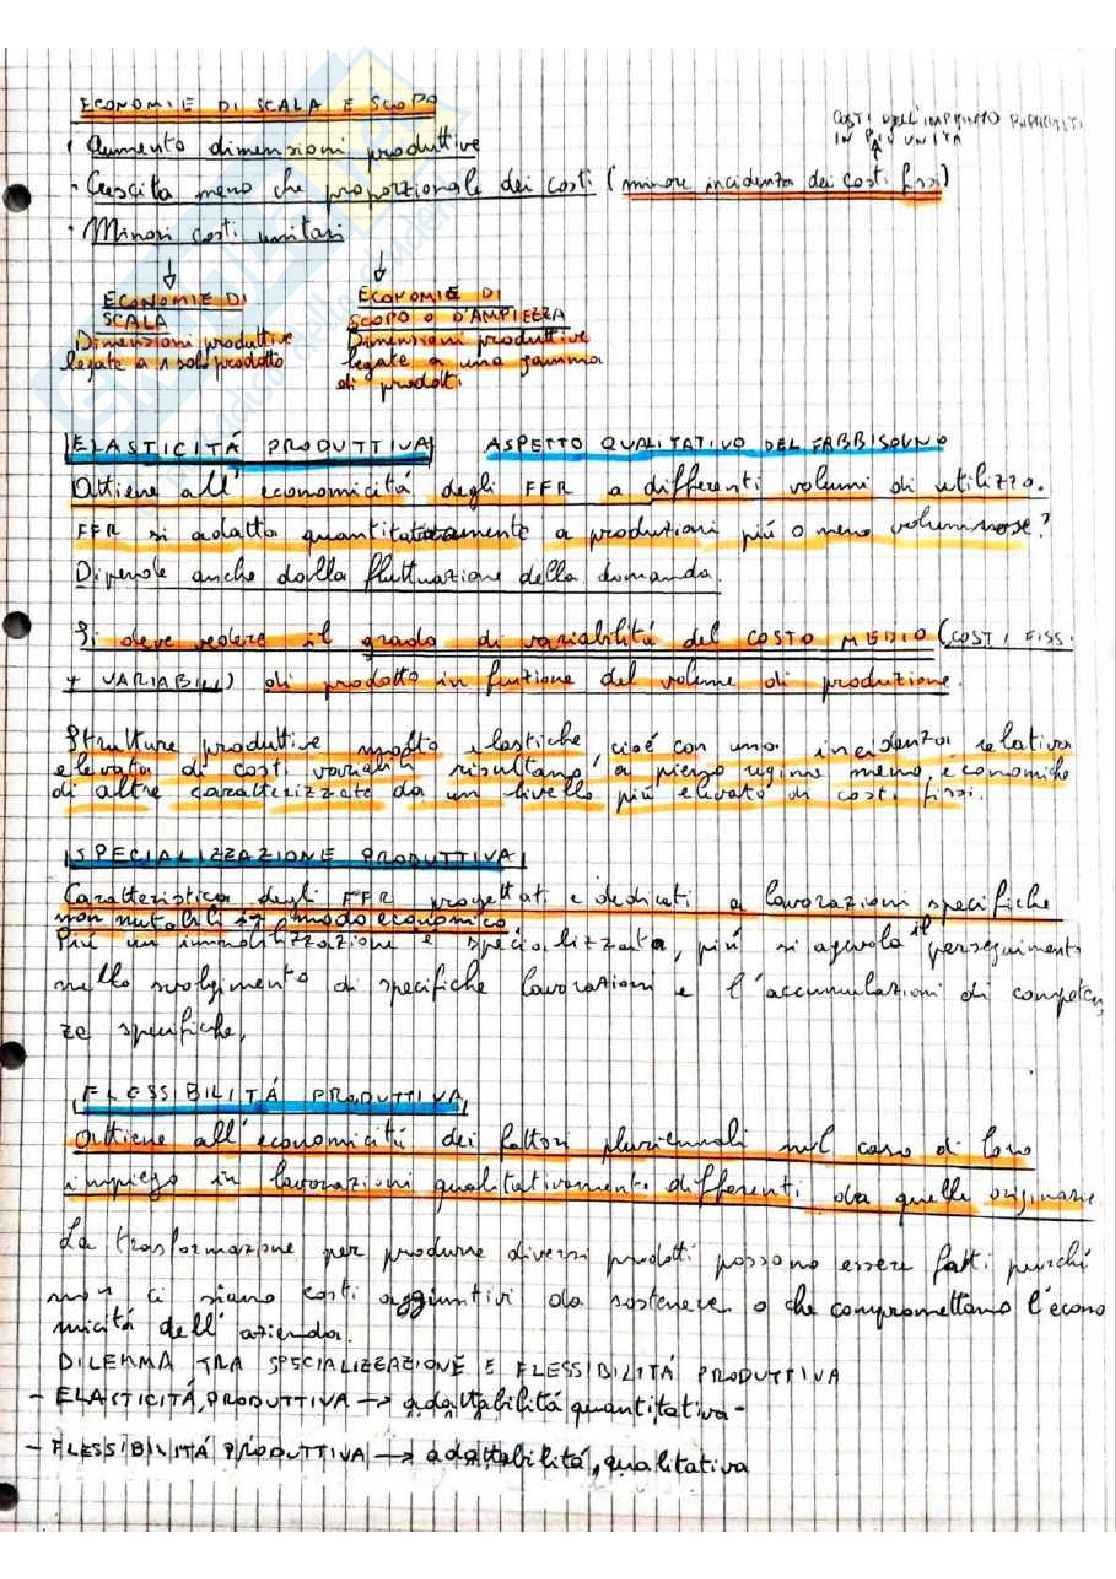 ECONOMIE DI SCALA E SCOPO
COSTI DELL'IMPIANTO RIPARTITI
IN PIÚ UNITÀ
Aumento dimensioni produttive
· Crescita meno che proporzionale dei costi (minore incidenza dei costi fissi)
· Minori costi unitari
ECONOMIE DI
SCALA
Dimensioni produttive
legate a 1 solo prodotto
ECONOMIE DI
SCOPO O D'AMPIEZZA
Dimensioni produttive
legate a una gamma
di prodotti
ELASTICITÁ PRODUTTIVA
ASPETTO QUALITATIVO DEL FABBISOGNO
Attiene all'economicitá degli FFR a differenti volumi di utilizzo.
FFR si adatta quantitativamente a produzioni piú o meno voluminose?
Dipende anche dalla fluttuazione della domanda.
Si deve vedere il grado di variabilitá del COSTO MEDIO (COSTI FISSI
+ VARIABILI) di prodotto in funzione del volume di produzione.
Strutture produttive molto elastiche, cioé con una incidenza relativa
elevata di costi variabili risultano, a pieno regime meno economiche
di altre caratterizzate da un livello piú elevato di costi fissi.
SPECIALIZZAZIONE PRODUTTIVA
Caratteristica degli FFR progettati e dedicati a lavorazioni specifiche
non mutabili in modo economico
Piú un immobilizzazione é specializzata, piú si agevola il perseguimento
nello svolgimento di specifiche lavorazioni e l'accumulazioni di competen
ze specifiche.
FLESSIBILITÁ PRODUTTIVA
Attiene all'economicitá dei fattori pluriennali nel caso di loro
impiego in lavorazioni qualitativamente differenti da quelle originarie
La trasformazione per produrre diversi prodotti possono essere fatti purché
non ci siano costi aggiuntivi da sostenere o che compromettano l'econo
micitá dell'azienda.
DILEMMA TRA SPECIALIZZAZIONE E FLESSIBILITÁ PRODUTTIVA
- ELASTICITÁ PRODUTTIVA → adattabilitá quantitativa -
- FLESSIBILITÁ PRODUTTIVA → adattabilitá qualitativa